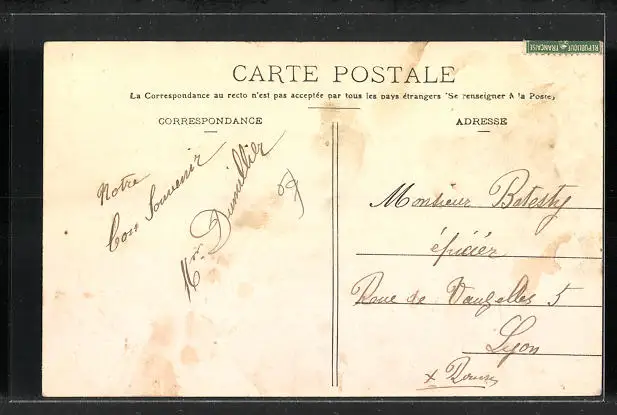 REPUBLIQUE FRANÇAISE
CARTE POSTALE
La Correspondance au recto n'est pas acceptée par tous les pays étrangers (Se renseigner à la Poste)
CORRESPONDANCE
ADRESSE
Notre
bon Souvenir
Mr. Dumillier
Monsieur Batesty
épicier
Rue de Vauzelles 5
Lyon
x